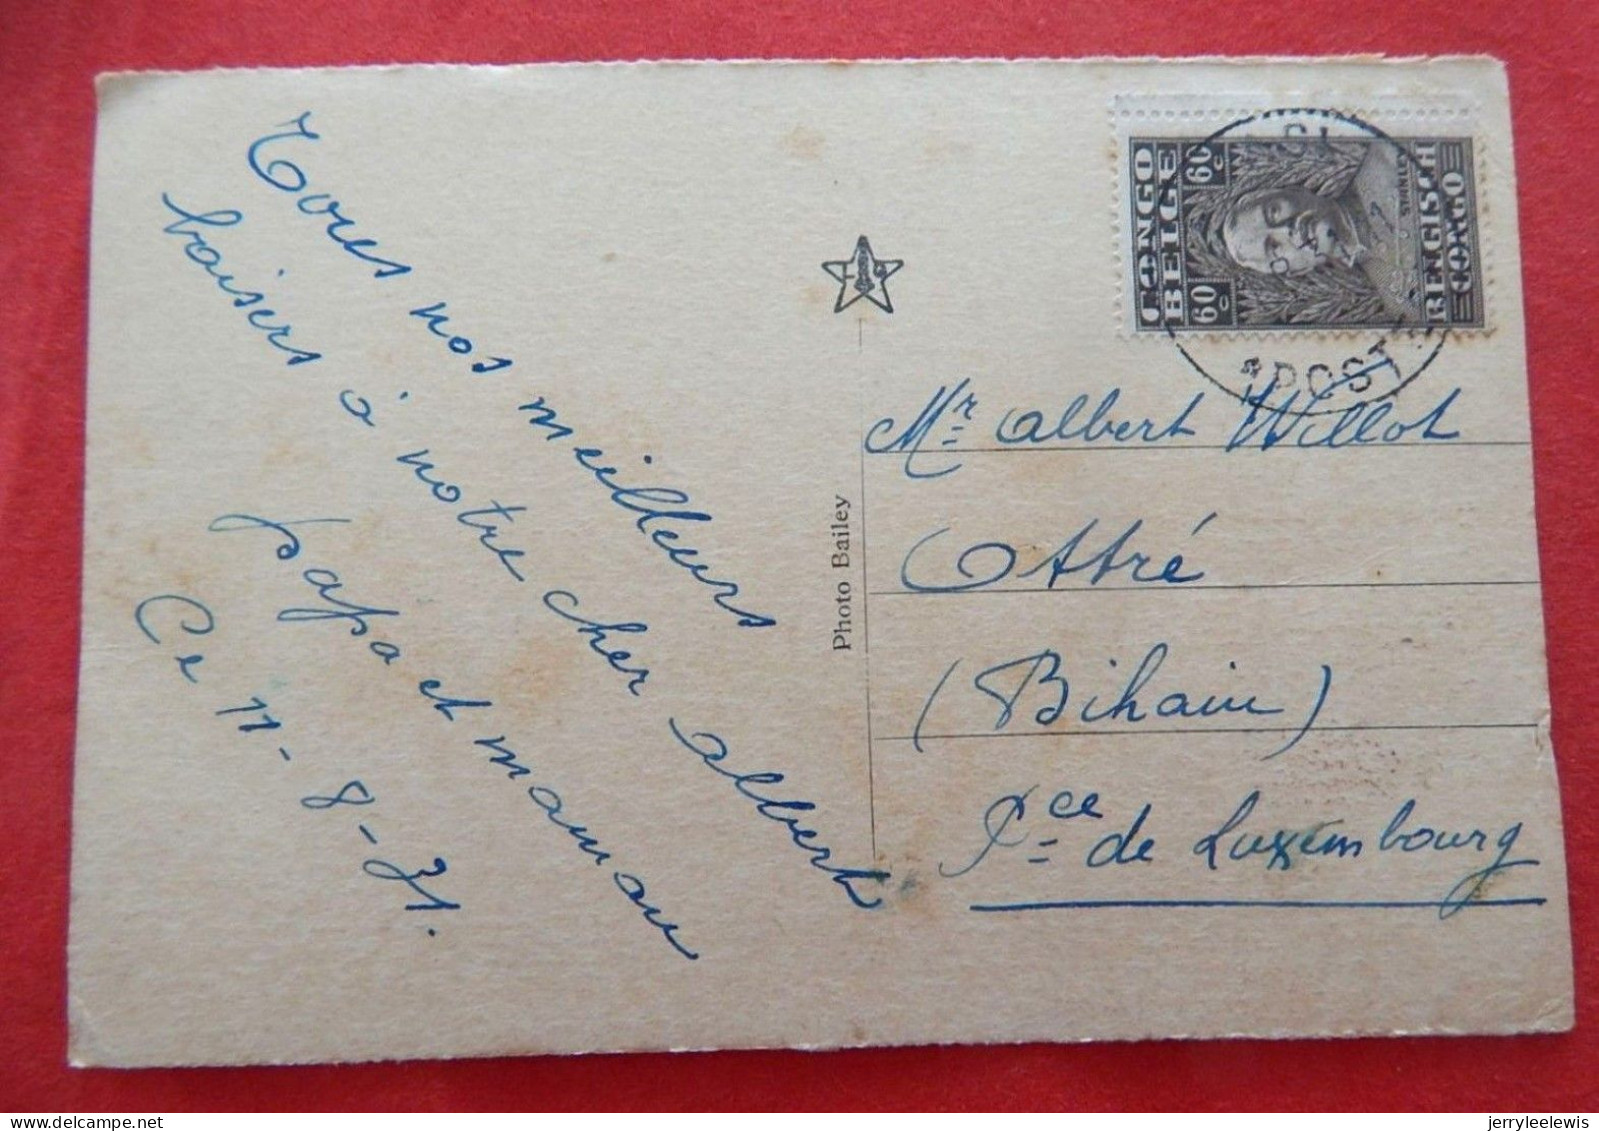 Tous nos meilleurs
baisers à notre cher Albert
papa et maman
Ce 11-8-31.
Photo Bailey
CONGO BELGE
60 c
60 c
STANLEY
BELGISCH CONGO
POST
Mr Albert Willot
Ottré
(Bihain)
Pce de Luxembourg
jerryleelewis
delcampe.net